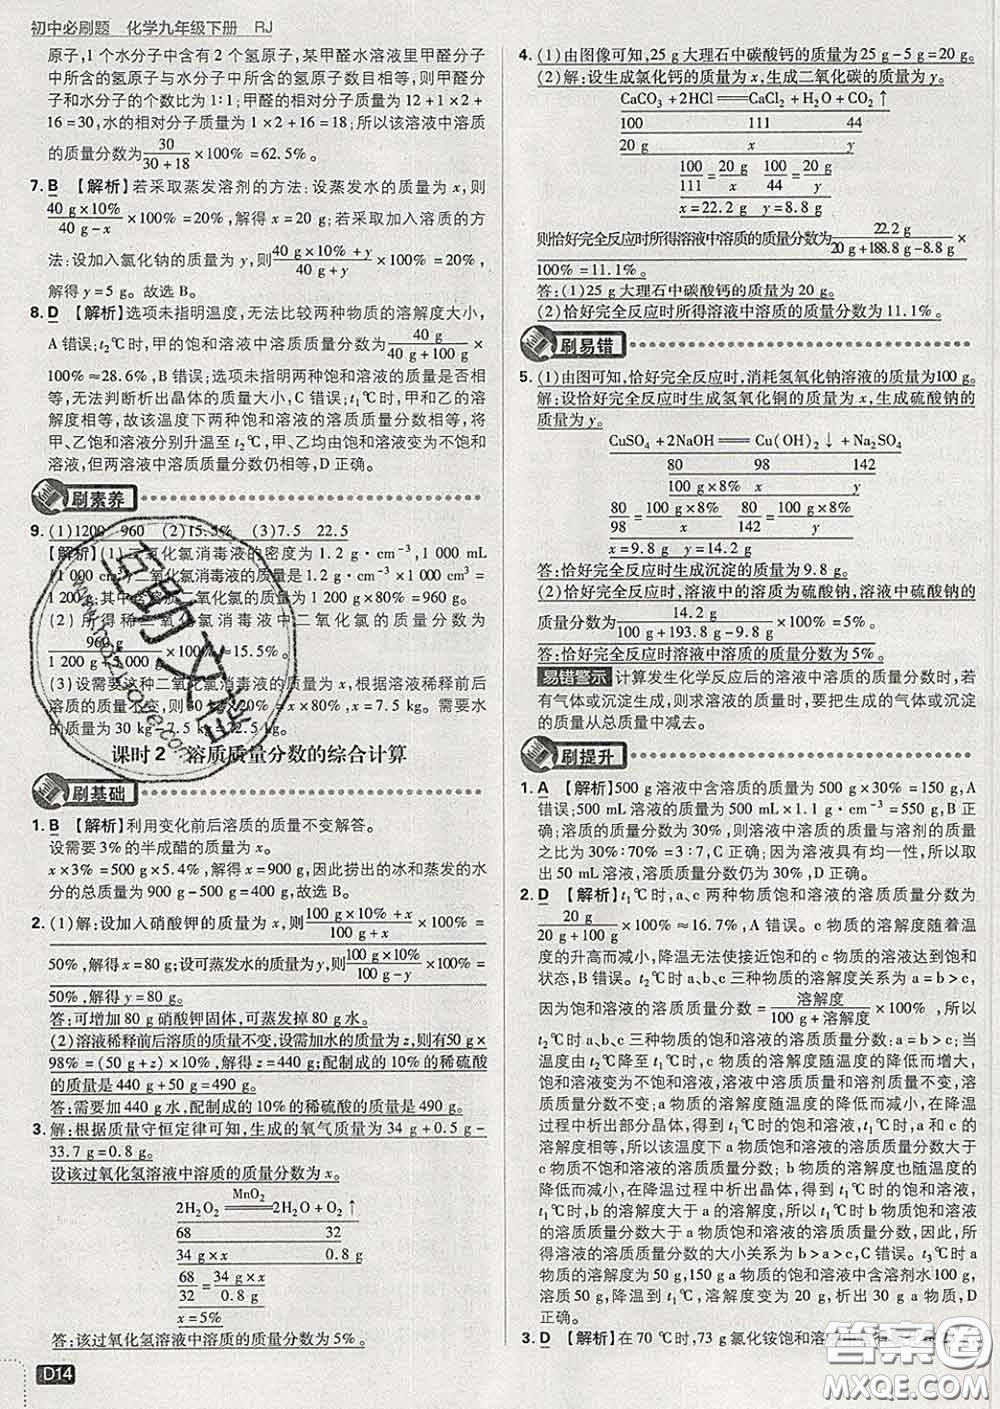 初中必刷题 化学九年级下册 RJ
原子,1 个水分子中含有 2 个氢原子,某甲醛水溶液里甲醛分子
中所含的氢原子与水分子中所含的氢原子数目相等,则甲醛分
子和水分子的个数比为 1∶1;甲醛的相对分子质量为 12 + 1 × 2
+ 16 = 30,水的相对分子质量为 1 × 2 + 16 = 18;所以该溶液中溶质
的质量分数为 30/(30 + 18) × 100% = 62.5%。
7. B 【解析】若采取蒸发溶剂的方法:设蒸发水的质量为 x,则
(40 g × 10%)/(40 g - x) × 100% = 20%,解得 x = 20 g;若采取加入溶质的方
法:设加入氯化钠的质量为 y,则 (40 g × 10% + y)/(40 g + y) × 100% = 20%,
解得 y = 5 g。故选 B。
8. D 【解析】选项未指明温度,无法比较两种物质的溶解度大小,
A 错误;t₂℃时,甲的饱和溶液中溶质质量分数为 40 g/(40 g + 100 g) ×
100% ≈ 28.6%,B 错误;选项未指明两种饱和溶液的质量是否相
等,无法判断析出晶体的质量大小,C 错误;t₁℃时,甲和乙的溶
解度相等,故该温度下两种饱和溶液的溶质质量分数相等,将
甲、乙饱和溶液分别升温至 t₂℃,甲、乙均由饱和溶液变为不饱和
溶液,但两溶液中溶质质量分数仍相等,D 正确。
刷素养
9. (1)1200 960 (2)15.5% (3)7.5 22.5
【解析】(1)二氧化氯消毒液的密度为 1.2 g·cm⁻³,1 000 mL
二氧化氯消毒液的质量是 1.2 g·cm⁻³ × 1 000 cm³ =
1 200 g;其中含溶质二氧化氯 1 200 g × 80% = 960 g。
(2)所得稀二氧化氯消毒液中二氧化氯的质量分数为
960 g/(1 200 g + 5 000 g) × 100% ≈ 15.5%。
(3)设需要这种二氧化氯消毒液的质量为 x,根据溶液稀释前后
溶质的质量不变,则 30 kg × 20% = 80% × x,x = 7.5 kg。需要水
的质量为 30 kg - 7.5 kg = 22.5 kg。
课时 2 溶质质量分数的综合计算
刷基础
1. B 【解析】利用变化前后溶质的质量不变解答。
设需要 3% 的半成醋的质量为 x。
x × 3% = 500 g × 5.4%,解得 x = 900 g,因此捞出的冰和蒸发的水
分的总质量为 900 g - 500 g = 400 g,故选 B。
2. (1)解:设加入硝酸钾的质量为 x,则 (100 g × 10% + x)/(100 g + x) × 100% =
50%,解得 x = 80 g;设可蒸发水的质量为 y,则 (100 g × 10%)/(100 g - y) × 100%
= 50%,解得 y = 80 g。
答:可增加 80 g 硝酸钾固体,可蒸发掉 80 g 水。
(2)溶液稀释前后溶质的质量不变,设需加水的质量为 z,则有 50 g ×
98% = (50 g + z) × 10%,解得 z = 440 g;配制成的 10% 的稀硫酸
的质量为 440 g + 50 g = 490 g。
答:需要加 440 g 水,配制成的 10% 的稀硫酸的质量是 490 g。
3. 解:根据质量守恒定律可知,生成的氧气质量为 34 g + 0.5 g -
33.7 g = 0.8 g。
设该过氧化氢溶液中溶质的质量分数为 x。
MnO₂
2H₂O₂ ═══ 2H₂O + O₂↑
68 32
34 g × x 0.8 g
68/32 = (34 g × x)/0.8 g
x = 5%
答:该过氧化氢溶液中溶质的质量分数为 5%。
D14
4. (1)由图像可知,25 g 大理石中碳酸钙的质量为 25 g - 5 g = 20 g。
(2)解:设生成氯化钙的质量为 x,生成二氧化碳的质量为 y。
CaCO₃ + 2HCl ═══ CaCl₂ + H₂O + CO₂↑
100 111 44
20 g x y
100/111 = 20 g/x 100/44 = 20 g/y
x = 22.2 g y = 8.8 g
则恰好完全反应时所得溶液中溶质的质量分数为 22.2 g/(20 g + 188.8 g - 8.8 g) ×
100% = 11.1%。
答:(1)25 g 大理石中碳酸钙的质量为 20 g。
(2)恰好完全反应时所得溶液中溶质的质量分数为 11.1%。
刷易错
5. (1)由图可知,恰好完全反应时,消耗氢氧化钠溶液的质量为100 g。
解:设恰好完全反应时生成氢氧化铜的质量为 x,生成硫酸钠的
质量为 y。
CuSO₄ + 2NaOH ═══ Cu(OH)₂↓ + Na₂SO₄
80 98 142
100 g × 8% x y
80/98 = (100 g × 8%)/x 80/142 = (100 g × 8%)/y
x = 9.8 g y = 14.2 g
答:恰好完全反应时生成沉淀的质量为 9.8 g。
(2)恰好完全反应时,溶液中的溶质为硫酸钠,溶液中硫酸钠的
质量分数为 14.2 g/(100 g + 193.8 g - 9.8 g) × 100% = 5%。
答:恰好完全反应时溶液中溶质的质量分数为 5%。
易错警示 计算发生化学反应后的溶液中溶质的质量分数时,若
有气体或沉淀生成,则求溶液的质量时,要把生成的气体或沉淀
的质量从总质量中减去。
刷提升
1. A 【解析】溶液中溶质的质量为 500 g × 30% = 150 g,A
错误;500 mL 溶液的质量为 500 mL × 1.1 g·cm⁻³ = 550 g,B 正
确;溶质的质量分数为 30%,则溶液中溶质的质量与溶剂的质量
之比为 30%∶70% = 3∶7,C 正确;因为溶液具有均一性,所以取
出 50 mL 溶液,溶质质量分数仍为 30%,D 正确。
2. D 【解析】t₁℃时,a、c 两种物质饱和溶液的溶质质量分数为
20 g/(20 g + 100 g) × 100% ≈ 16.7%,A 错误。c 物质的溶解度随着温
度的升高而减小,降温无法使接近饱和的 c 溶液达到饱和
状态,B 错误。t₂℃时 a、b、c 三种物质的溶解度关系为 a = b > c,
因为饱和溶液的溶质质量分数 = 溶解度/(100 g + 溶解度) × 100%,所以
t₂℃时 a、b、c 三种物质的溶液的溶质质量分数:a = b > c;当
温度由 t₂℃降至 t₁℃时,c 物质的溶解度随温度的降低而增大,
饱和溶液变为不饱和溶液,溶液中溶质质量和溶剂质量不变,
溶质质量分数不变;a 物质的溶解度随温度的降低而减小,在降温
过程中析出部分晶体,得到 t₁℃时的饱和溶液,t₁℃时,a 和 c 的
溶解度相等,所以该温度下 a 物质饱和溶液的溶质质量分数大于
c 物质不饱和溶液的溶质质量分数;b 物质的溶解度随温度的
降低而减小,在降温过程中析出晶体,得到 t₁℃时的饱和溶液,
t₁℃时,b 的溶解度大于 a 的溶解度,所以 t₁℃时 b 物质饱和溶液
的溶质质量分数大于 a 物质饱和溶液的溶质质量分数,因此,所
得溶液的溶质质量分数的大小关系为 b > a > c,C 错误。t₃℃时 a
物质的溶解度为 50 g,150 g a 物质的饱和溶液中含溶剂水100 g,
溶质 50 g,t₁℃时 a 物质的溶解度变为 20 g,析出 30 g 溶质,D
正确。
3. D 【解析】在 70 ℃时,73 g 氯化铵饱和溶液中
答案卷
MXQE.COM